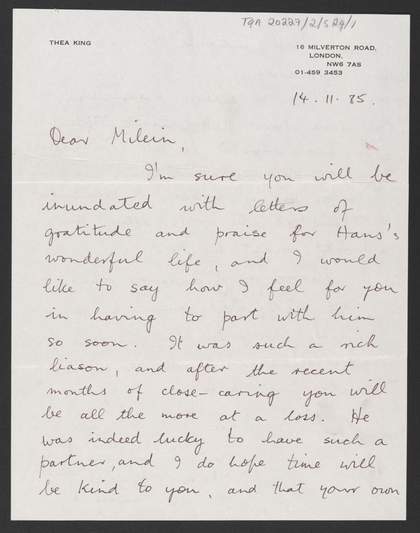 TGA 20227/2/5/29/1
THEA KING
16 MILVERTON ROAD,
LONDON,
NW6 7AS
01-459 3453
14.11.85.
Dear Milein,
I'm sure you will be
inundated with letters of
gratitude and praise for Hans's
wonderful life, and I would
like to say how I feel for you
in having to part with him
so soon. It was such a rich
liason, and after the recent
months of close-caring you will
be all the more at a loss. He
was indeed lucky to have such a
partner, and I do hope time will
be kind to you, and that your own